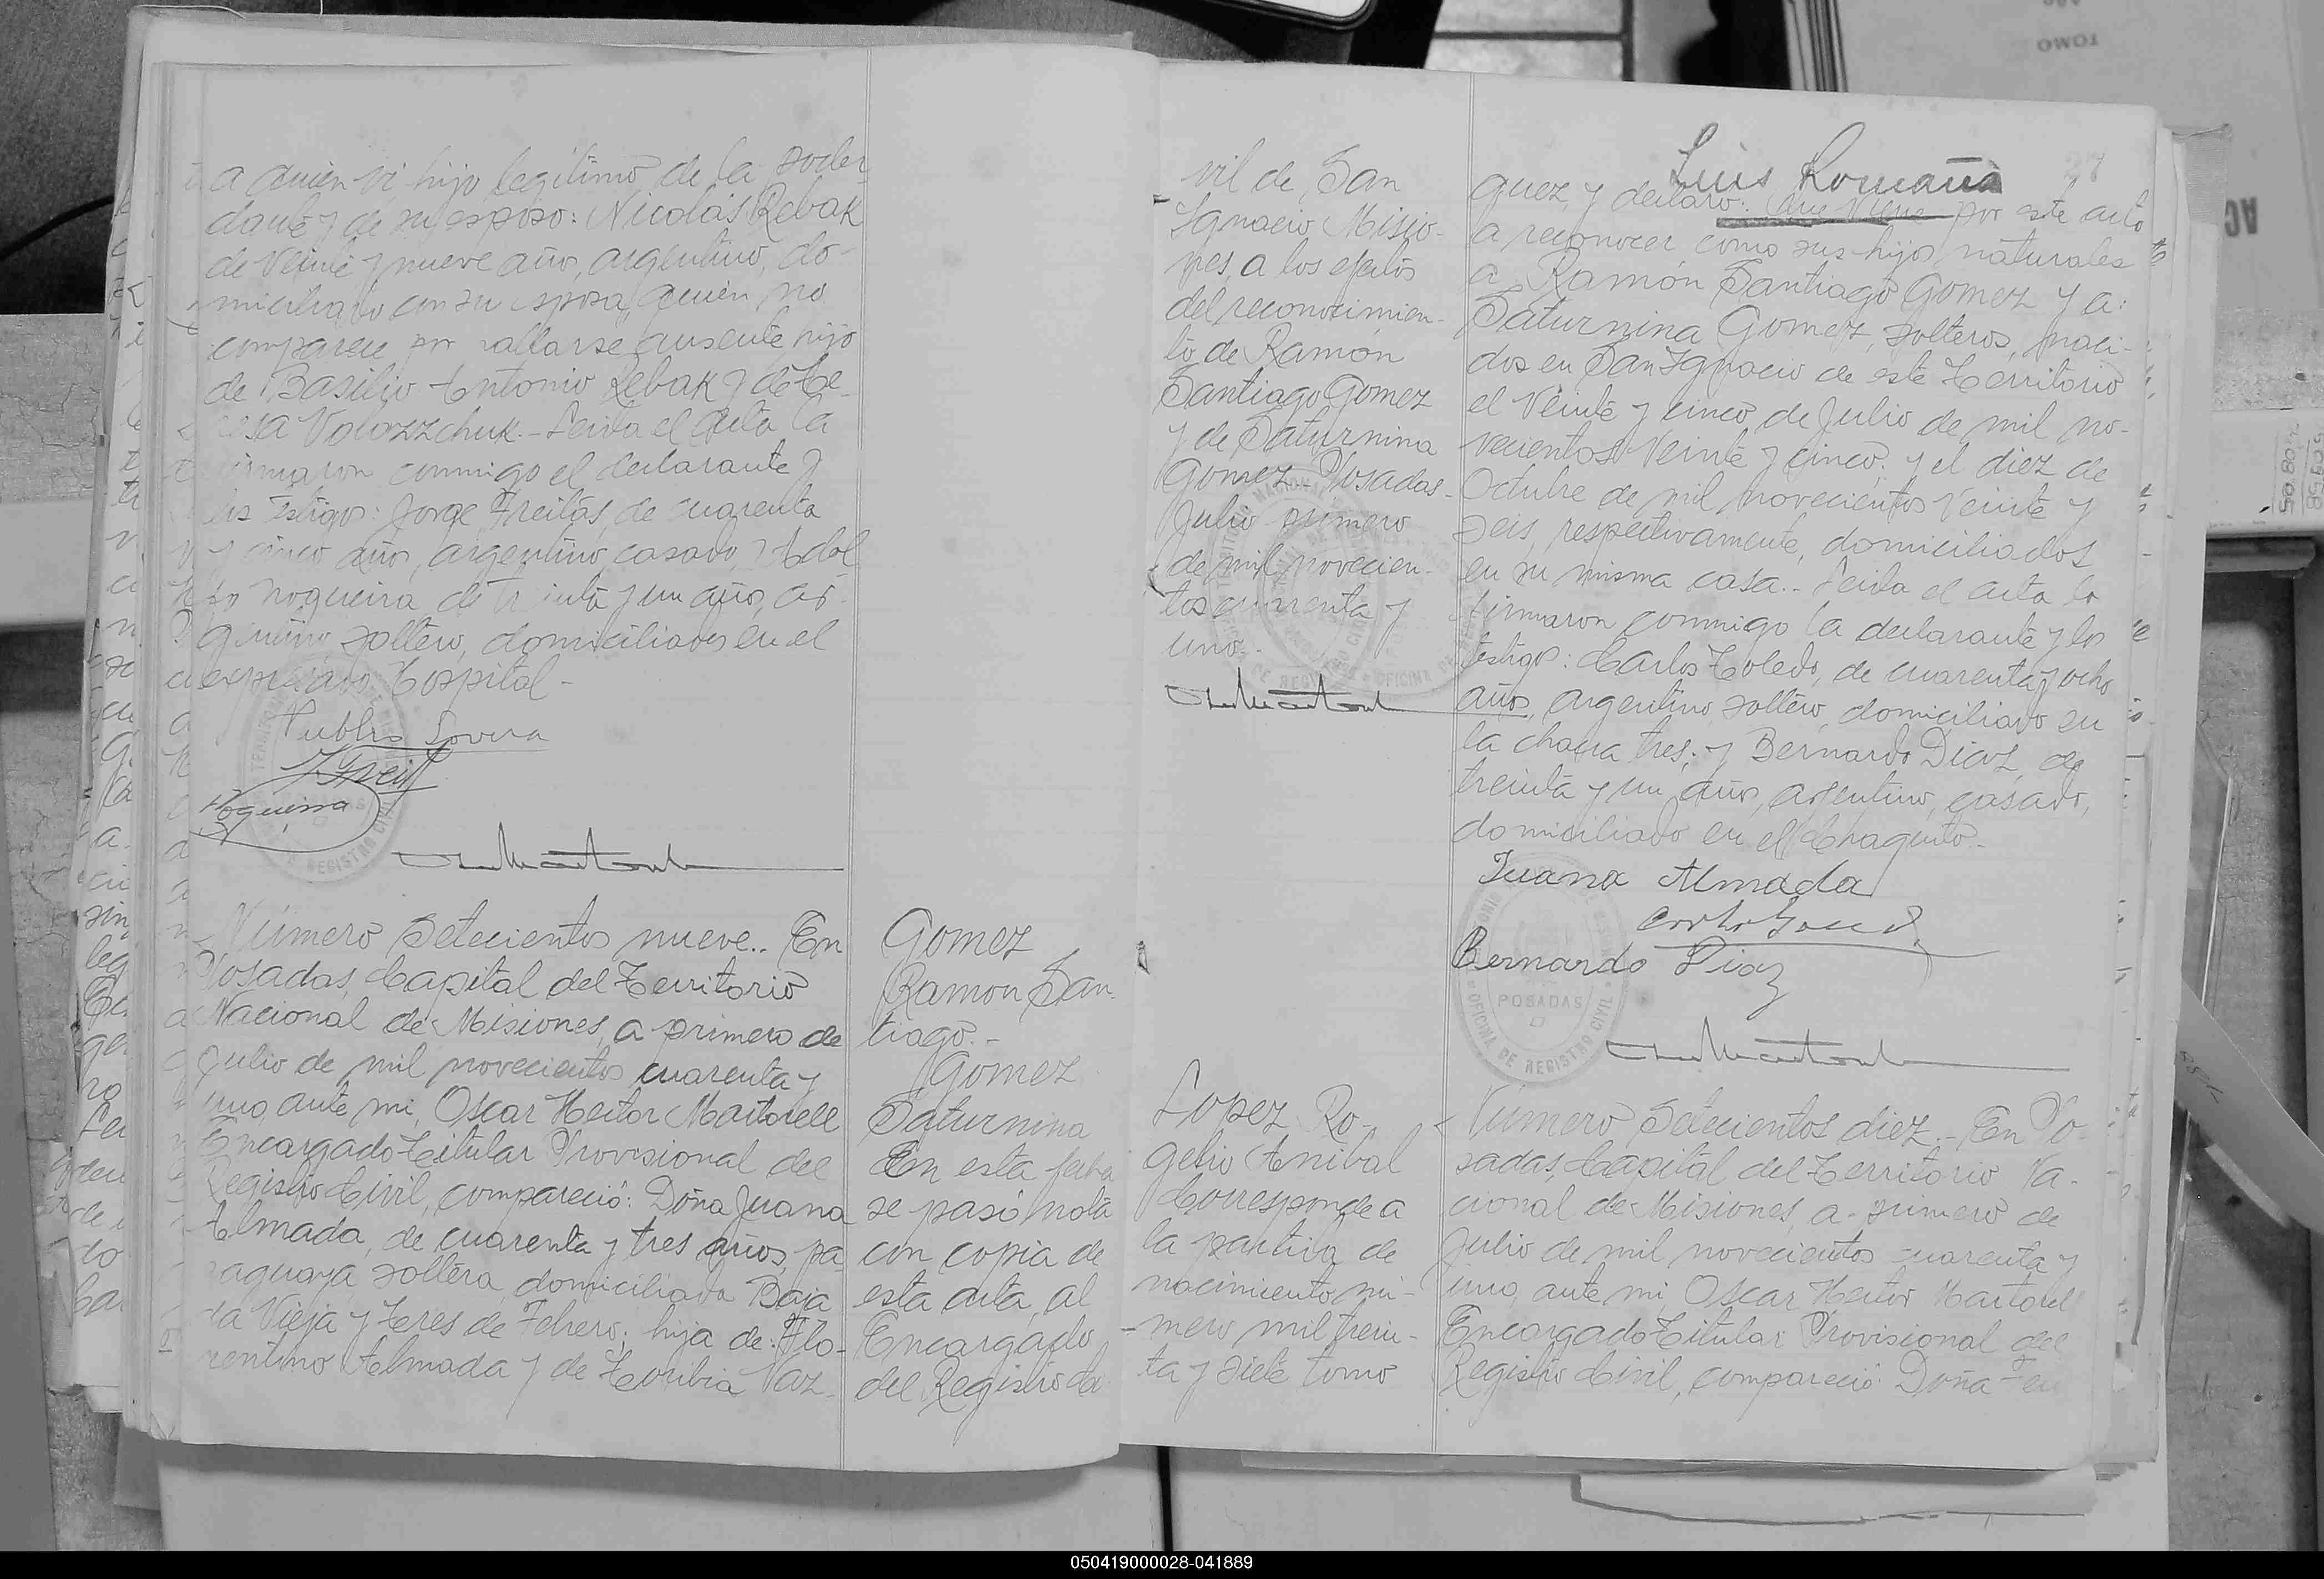 a quien vi hijo legítimo de la poder
dante y de su esposo: Nicolás Rebak
de veinte y nueve años, argentino, do-
miciliado con su esposa, quien no
comparece por hallarse ausente hijo
de Basilio Antonio Rebak y de Te-
resa Volozzchuk.- Leída el acta la
firmaron conmigo el declarante y
los testigos: Jorge Freitas, de cuarenta
y cinco años, argentino, casado, y Adol
fo Nogueira, de treinta y un años, ar-
gentino, soltero, domiciliados en el
expresado Hospital.-
Nogueira
Número Setecientos nueve.. En
Posadas, Capital del Territorio
Nacional de Misiones, a primero de
Julio de mil novecientos cuarenta y
uno, ante mi, Oscar Hector Martorell
Encargado Titular Provisional del
Registro Civil, compareció: Doña Juana
Almada, de cuarenta y tres años, pa-
raguaya soltera domiciliada Baja
da Vieja y Tres de Febrero; hija de: Flo-
rentino Almada y de Toribia Vaz-
Gomez
Ramon San-
tiago.-
Gomez
Saturnina
En esta fecha
se pasó nota
con copia de
esta acta, al
Encargado
del Registro Ci
vil de San
Ignacio Misio-
nes, a los efectos
del reconocimien-
to de Ramón
Santiago Gomez
y de Saturnina
Gomez.- Posadas-
Julio primero
de mil novecien-
tos cuarenta y
uno.-
Luis Romaña
27
quez, y declaró: Que viene por este acto
a reconocer como sus hijos naturales
a Ramón Santiago Gomez y a:
Saturnina Gomez, solteros, naci-
dos en San Ignacio de este Territorio
el veinte y cinco de Julio de mil no-
vecientos veinte y cinco; y el diez de
Octubre de mil novecientos veinte y
seis, respectivamente, domiciliados
en su misma casa.. Leída el acta la
firmaron conmigo la declarante y los
testigos: Carlos Toledo, de cuarenta y ocho
años, argentino, soltero, domiciliado en
la chacra tres; y Bernardo Diaz, de
treinta y un años, argentino, casado,
domiciliado en el Chaquito.-
Juana Almada
Bernardo Diaz
POSADAS
OFICINA DE REGISTRO CIVIL
Lopez Ro-
gelio Anibal
Corresponde a
la partida de
nacimiento nú-
mero mil trein-
ta y siete tomo
Número Setecientos diez.- En Po-
sadas, Capital del Territorio Na-
cional de Misiones, a primero de
Julio de mil novecientos cuarenta y
uno, ante mi, Oscar Hector Martorell
Encargado Titular Provisional del
Registro Civil, compareció: Doña
TOMO
050419000028-041889